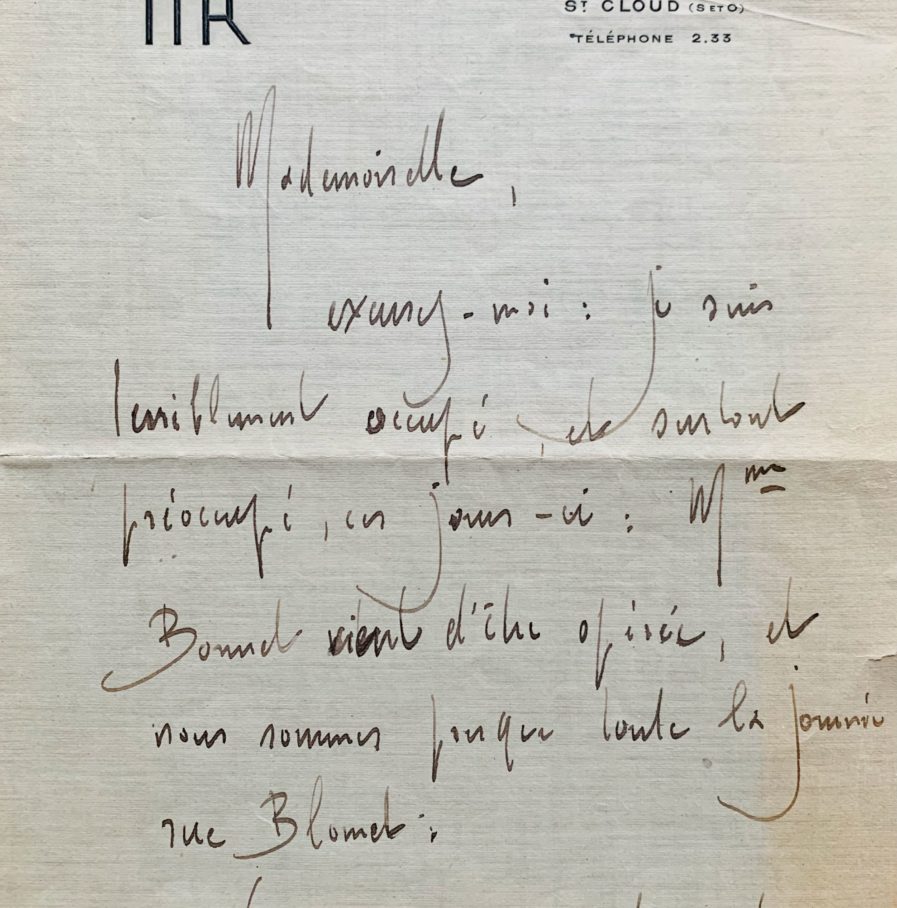 St CLOUD (S ET O)
TÉLÉPHONE 2.33
Mademoiselle,
excusez-moi : je suis
terriblement occupé, et surtout
préoccupé, ces jours-ci : Mme
Bonnet vient d'être opérée, et
nous sommes presque toute la journée
rue Blomet :